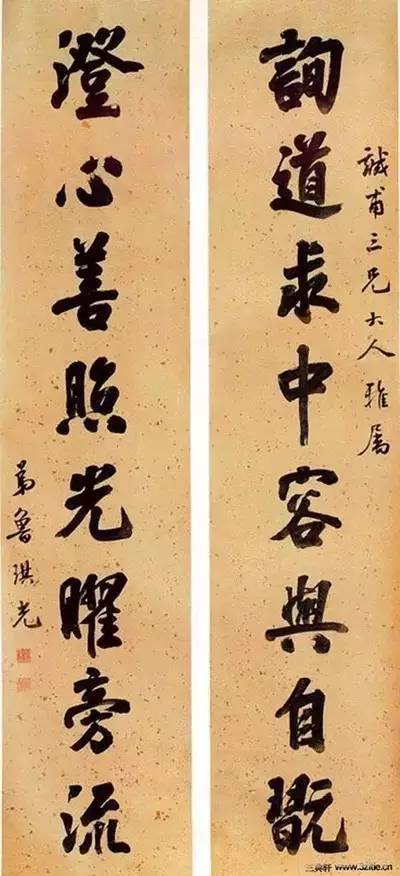 詢道求中容與自翫
誠甫三兄大人雅屬
澄心善照光曜旁流
弟魯琪光
三典轩 www.32kk.cn